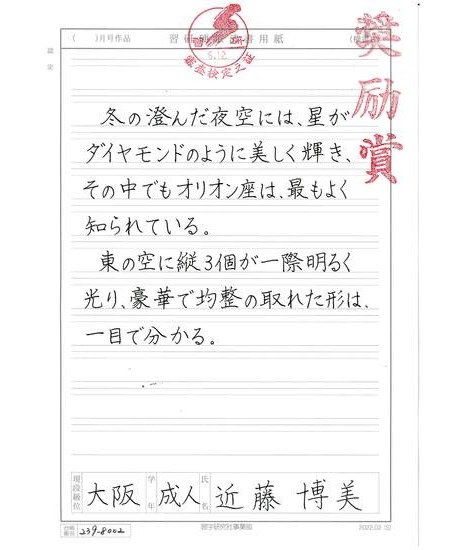 (　)月号作品
奨励賞
5.12
審査検定之証
冬の澄んだ夜空には、星が
ダイヤモンドのように美しく輝き、
その中でもオリオン座は、最もよく
知られている。
東の空に縦3個が一際明るく
光り、豪華で均整の取れた形は、
一目で分かる。
現段級位
大阪
学年
成人
氏名
近藤博美
239-8002
2022.02